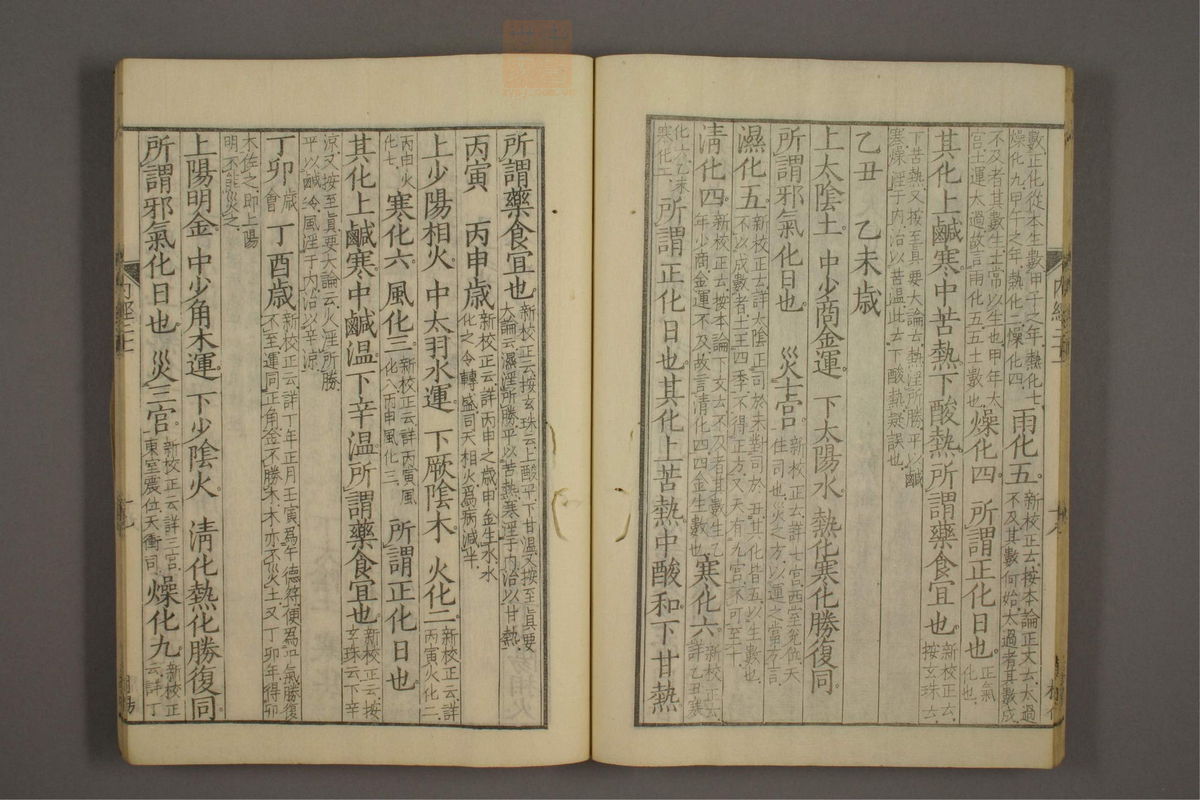 數正化從本生數甲子之年熱化七燥化九甲午之年熱化二燥化四 雨化五。新校正云按本論正文云太過不及其數何始太過者其數成
不及者其數生土常以生也甲年太宮土運太過故言雨化五五土數也 燥化四。所謂正化日也。正氣化也
其化上鹹寒中苦熱下酸熱所謂藥食宜也。新校正云按玄珠云
下苦熱又按至真要大論云熱淫所勝平以鹹寒燥淫于內治以苦温此云下酸熱疑誤也
乙丑 乙未歲
上太陰土。中少商金運。下太陽水。熱化寒化勝復同。
所謂邪氣化日也。災七宮。新校正云詳七宮西室兌位天柱司也災之方以運之當方言
濕化五。新校正云詳太陰正司於未對司於丑其化皆五以生數也不以成數者土王四季不得正方又天有九宮不可至十
清化四。新校正云按本論下文云不及者其數生乙年少商金運不及故言清化四四金生數也 寒化六。新校正云詳乙丑寒
化六乙未寒化一 所謂正化日也。其化上苦熱中酸和下甘熱
所謂藥食宜也。新校正云按玄珠云上酸平下甘温又按至真要大論云濕淫所勝平以苦熱寒淫于內治以甘熱
丙寅 丙申歲 新校正云詳丙申之歲申金生水水化之令轉盛司天相火爲病減半
上少陽相火。中太羽水運。下厥陰木。火化二。新校正云詳丙寅火化二
丙申火化七 寒化六。風化三。新校正云詳丙寅風化八丙申風化三 所謂正化日也
其化上鹹寒中鹹温下辛温所謂藥食宜也。新校正云按玄珠云下辛
涼又按至真要大論云火淫所勝平以鹹冷風淫于內治以辛涼
丁卯 歲會 丁酉歲 新校正云詳丁年正月壬寅爲干德符便爲平氣勝復不至運同正角金不勝木木亦不災土又丁卯年得卯
木佐之即上陽明不能災之
上陽明金。中少角木運。下少陰火。清化熱化勝復同。
所謂邪氣化日也。災三宮。新校正云詳三宮東室震位天衝司 燥化九。新校正云詳丁